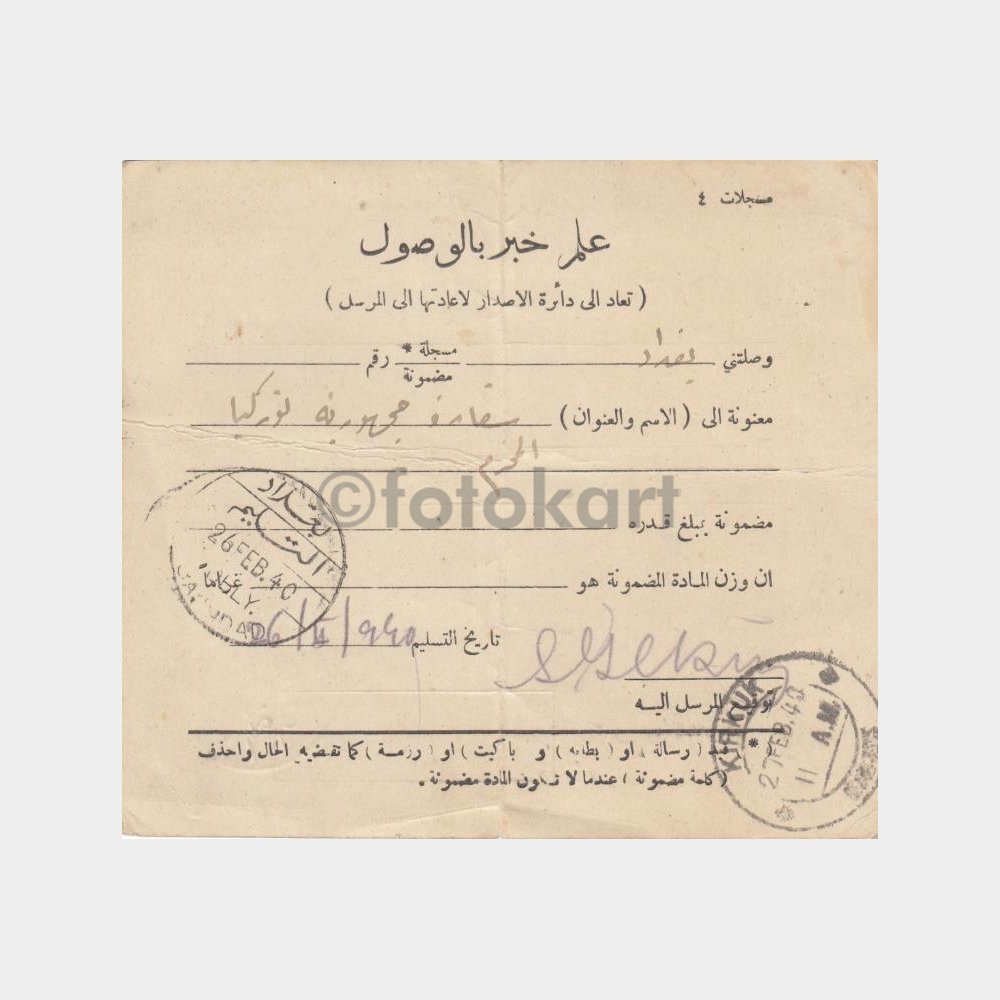 مسجلات ٤
علم خبر بالوصول
( تعاد الى دائرة الاصدار لاعادتها الى المرسل )
وصلتني بغداد مسجلة * مضمونة رقم
معنونة الى ( الاسم والعنوان ) سفارة جمهورية توركيا
المحترم
©fotokart
مضمونة بمبلغ قدره
ان وزن المادة المضمونة هو
بغداد
التسليم
26 FEB. 40
DLY.
BAGHDAD
تاريخ التسليم 26/II/940
توقيع المرسل اليه
KIRKUK
27 FEB. 40
11 A.M.
* ( رسالة ) او ( بطاقة ) و باكيت ) او ( رزمة ) كما تقتضيه الحال واحذف
( كلمة مضمونة ) عندما لا تكون المادة مضمونة .